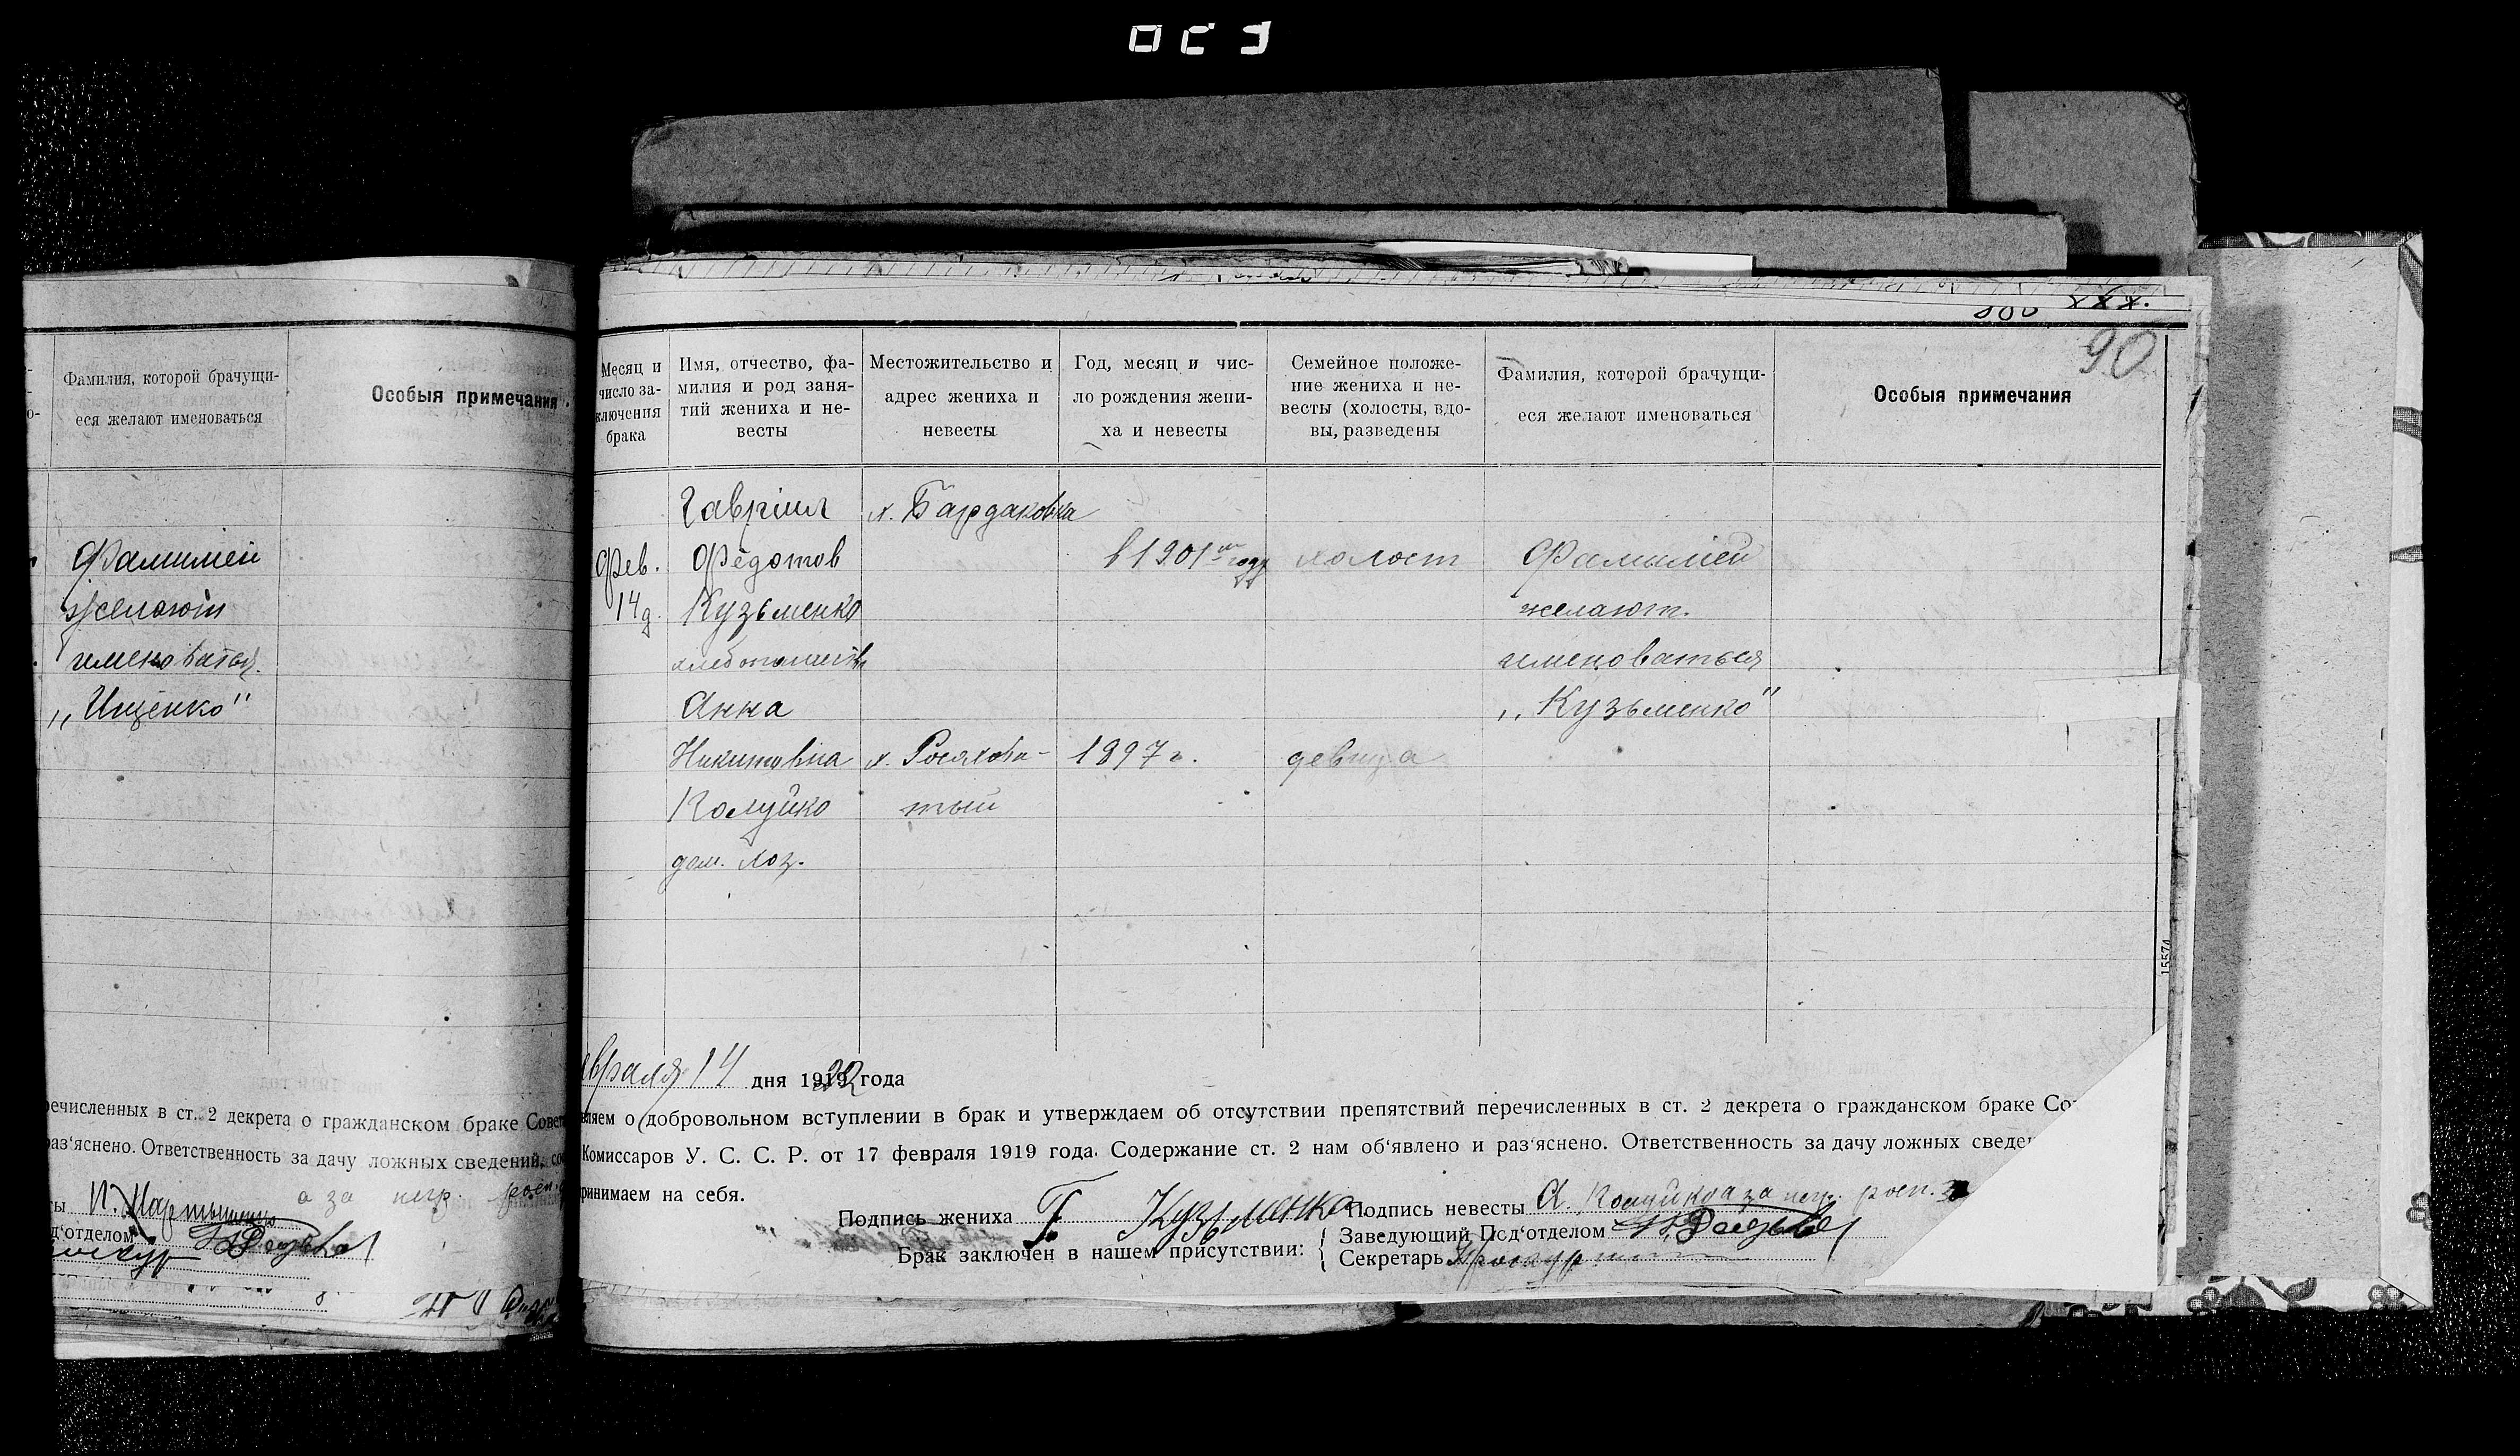 Фамилия, которой брачущи-
еся желают именоваться
Особыя примечания
Фамилией
желают
именоваться
„Ищенко"
речисленных в ст. 2 декрета о гражданском браке Совет
раз'яснено. Ответственность за дачу ложных сведений, со
а за негр. росп.
д'отделом
90
Месяц и
число за-
ключения
брака
Имя, отчество, фа-
милия и род заня-
тий жениха и не-
весты
Местожительство и
адрес жениха и
невесты
Год, месяц и чис-
ло рождения жени-
ха и невесты
Семейное положе-
ние жениха и не-
весты (холосты, вдо-
вы, разведены
Фамилия, которой брачущи-
еся желают именоваться
Особыя примечания
Фев.
14д.
Гавріил
Федотов
Кузьменко
хлебопашеств
х. Бардаковка
в 1901 году
холост
Фамилией
желают.
именоваться
„Кузьменко"
Анна
Никитовна
Колуйко
дом. хоз.
х. Росяхова-
тый
1897 г.
девица
15574
евраля 14 дня 1922 года
вляем о добровольном вступлении в брак и утверждаем об отсутствии препятствий перечисленных в ст. 2 декрета о гражданском браке Сов
Комиссаров У. С. С. Р. от 17 февраля 1919 года. Содержание ст. 2 нам об'явлено и раз'яснено. Ответственность за дачу ложных сведен
ринимаем на себя.
Подпись жениха Г. Кузьменко Подпись невесты А. Колуйко а за негр. росп.
Брак заключен в нашем присутствии:
Заведующий Под'отделом
Секретарь